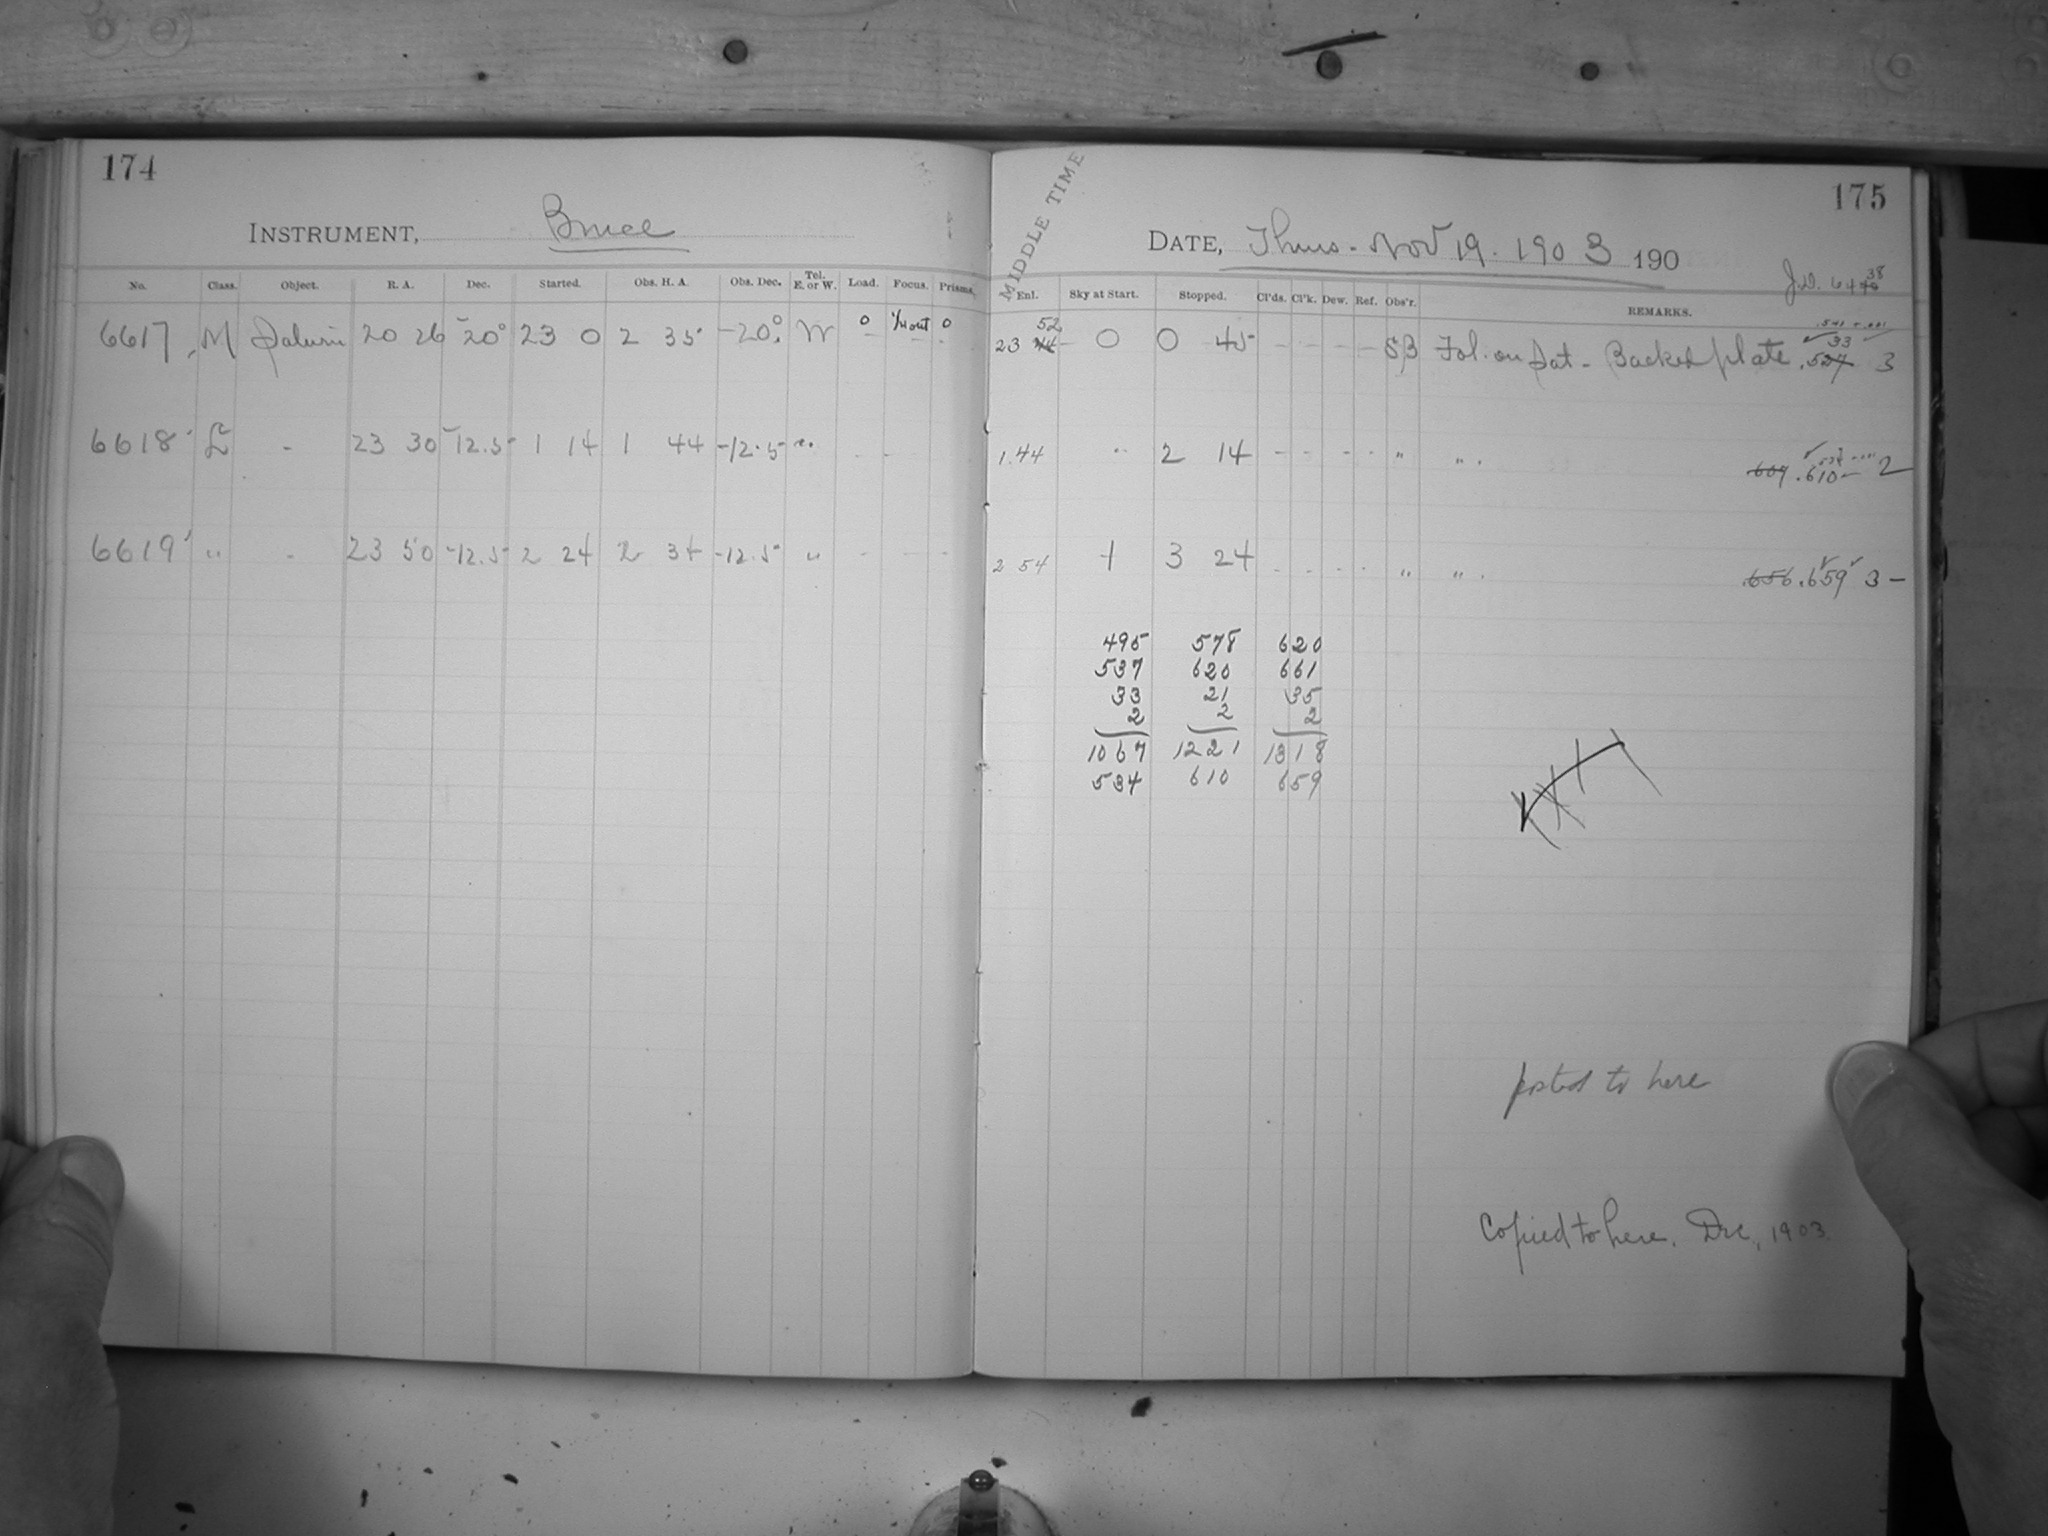 174
INSTRUMENT, Bruce
No. Class. Object. R. A. Dec. Started. Obs. H. A. Obs. Dec. Tel. E. or W. Load. Focus. Prisms.
6617 M Saturn 20 26 -20° 23 0 2 35 -20° W 0 1/4 out 0
6618 L - 23 30 -12.5 1 14 1 44 -12.5
6619 " - 23 50 -12.5 2 24 2 34 -12.5 "
175
MIDDLE TIME
DATE, Thurs - Nov 19. 1903 190
J.D. 6438
Enl. Sky at Start. Stopped. Cl'ds. Cl'k. Dew. Ref. Obs'r. REMARKS.
23 52 0 0 45 - - - - SB Fol. on Sat - Backed plate .527 33 3
1.44 " 2 14 - - - - " " . .607 .610 - 2
2 54 1 3 24 - - - - " " . .656 .659 3 -
495 578 620
537 620 661
33 21 35
2 2 2
1067 1221 1318
534 610 659
posted to here
Copied to here. Dec, 1903